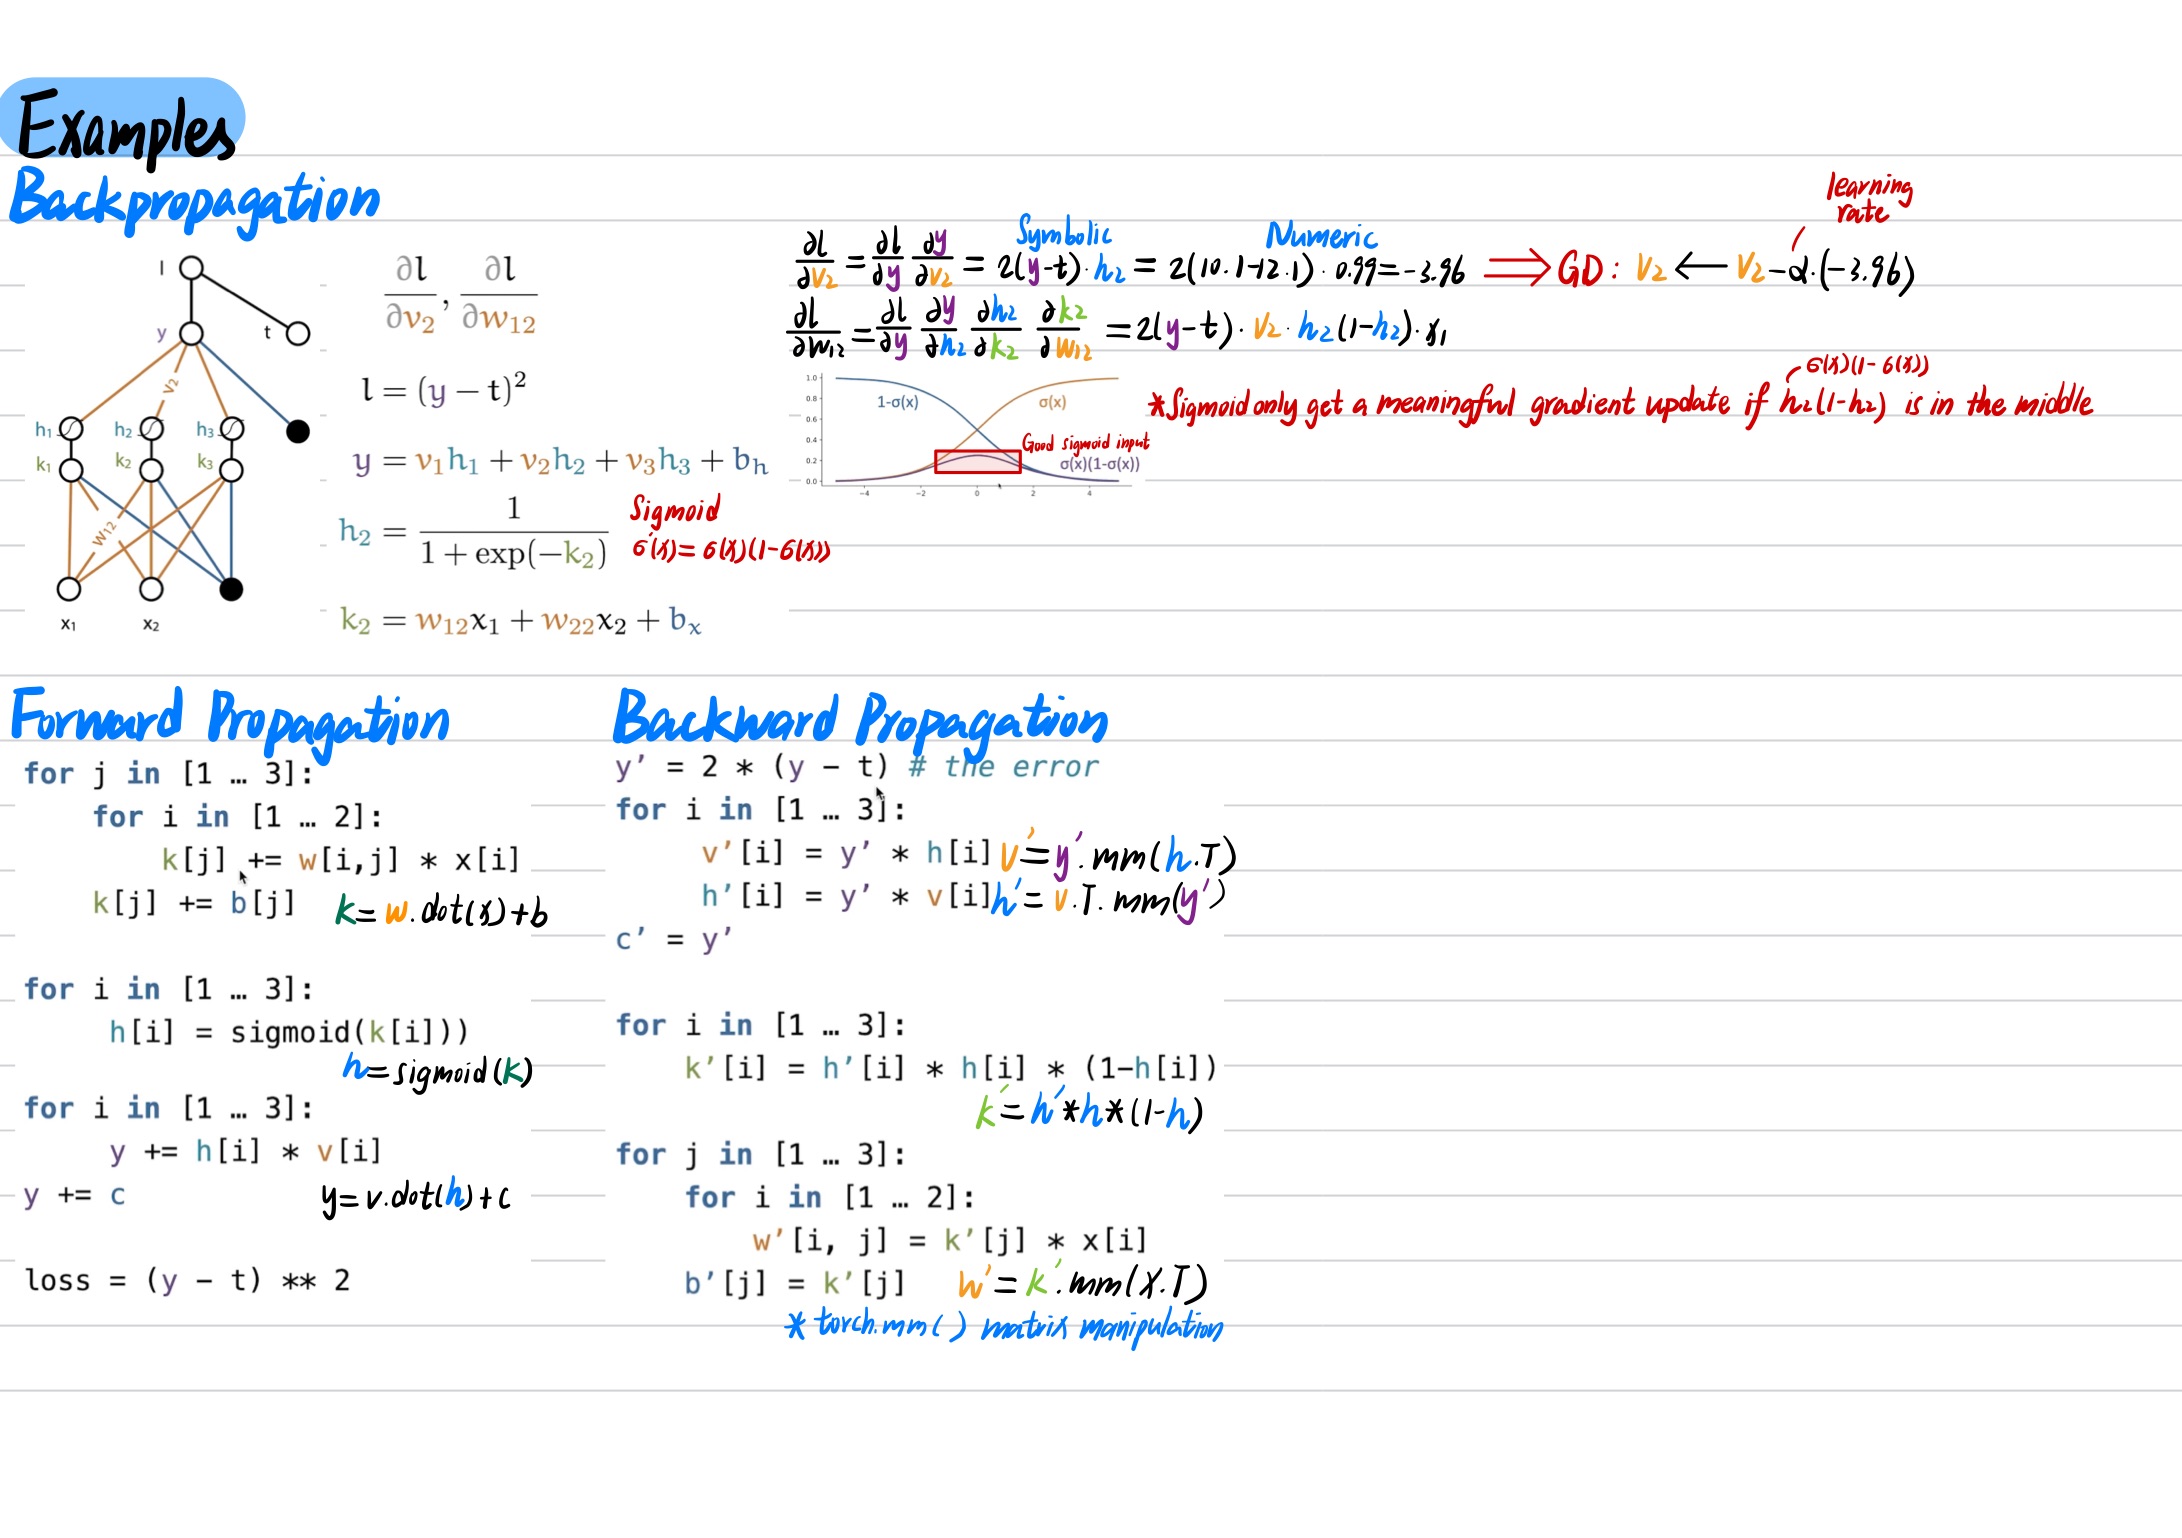 Examples
Backpropagation
l
y
t
v₂
h₁ h₂ h₃
k₁ k₂ k₃
w₁₂
x₁ x₂
∂l/∂v₂, ∂l/∂w₁₂
l = (y − t)²
y = v₁h₁ + v₂h₂ + v₃h₃ + bₕ
h₂ = 1/(1 + exp(−k₂))
Sigmoid
σ'(x) = σ(x)(1-σ(x))
k₂ = w₁₂x₁ + w₂₂x₂ + bₓ
Symbolic
Numeric
learning
rate
∂l/∂v₂ = ∂l/∂y ∂y/∂v₂ = 2(y-t)·h₂ = 2(10.1-12.1)·0.99 = -3.96 ⟹ GD: v₂ ← v₂-α·(-3.96)
∂l/∂w₁₂ = ∂l/∂y ∂y/∂h₂ ∂h₂/∂k₂ ∂k₂/∂w₁₂ = 2(y-t)·v₂·h₂(1-h₂)·x₁
1.0
0.8
0.6
0.4
0.2
0.0
−4 −2 0 2 4
1-σ(x)
σ(x)
Good sigmoid input
σ(x)(1-σ(x))
σ(x)(1-σ(x))
*Sigmoid only get a meaningful gradient update if h₂(1-h₂) is in the middle
Forward Propagation
for j in [1 … 3]:
for i in [1 … 2]:
k[j] += w[i,j] * x[i]
k[j] += b[j]
k = w.dot(x)+b
for i in [1 … 3]:
h[i] = sigmoid(k[i]))
h=sigmoid(k)
for i in [1 … 3]:
y += h[i] * v[i]
y += c
y=v.dot(h)+c
loss = (y − t) ** 2
Backward Propagation
y’ = 2 * (y − t) # the error
for i in [1 … 3]:
v’[i] = y’ * h[i] v'=y'.mm(h.T)
h’[i] = y’ * v[i] h'=v.T.mm(y')
c’ = y’
for i in [1 … 3]:
k’[i] = h’[i] * h[i] * (1−h[i])
k'=h'*h*(1-h)
for j in [1 … 3]:
for i in [1 … 2]:
w’[i, j] = k’[j] * x[i]
b’[j] = k’[j] w'=k'.mm(X.T)
* torch.mm() matrix manipulation